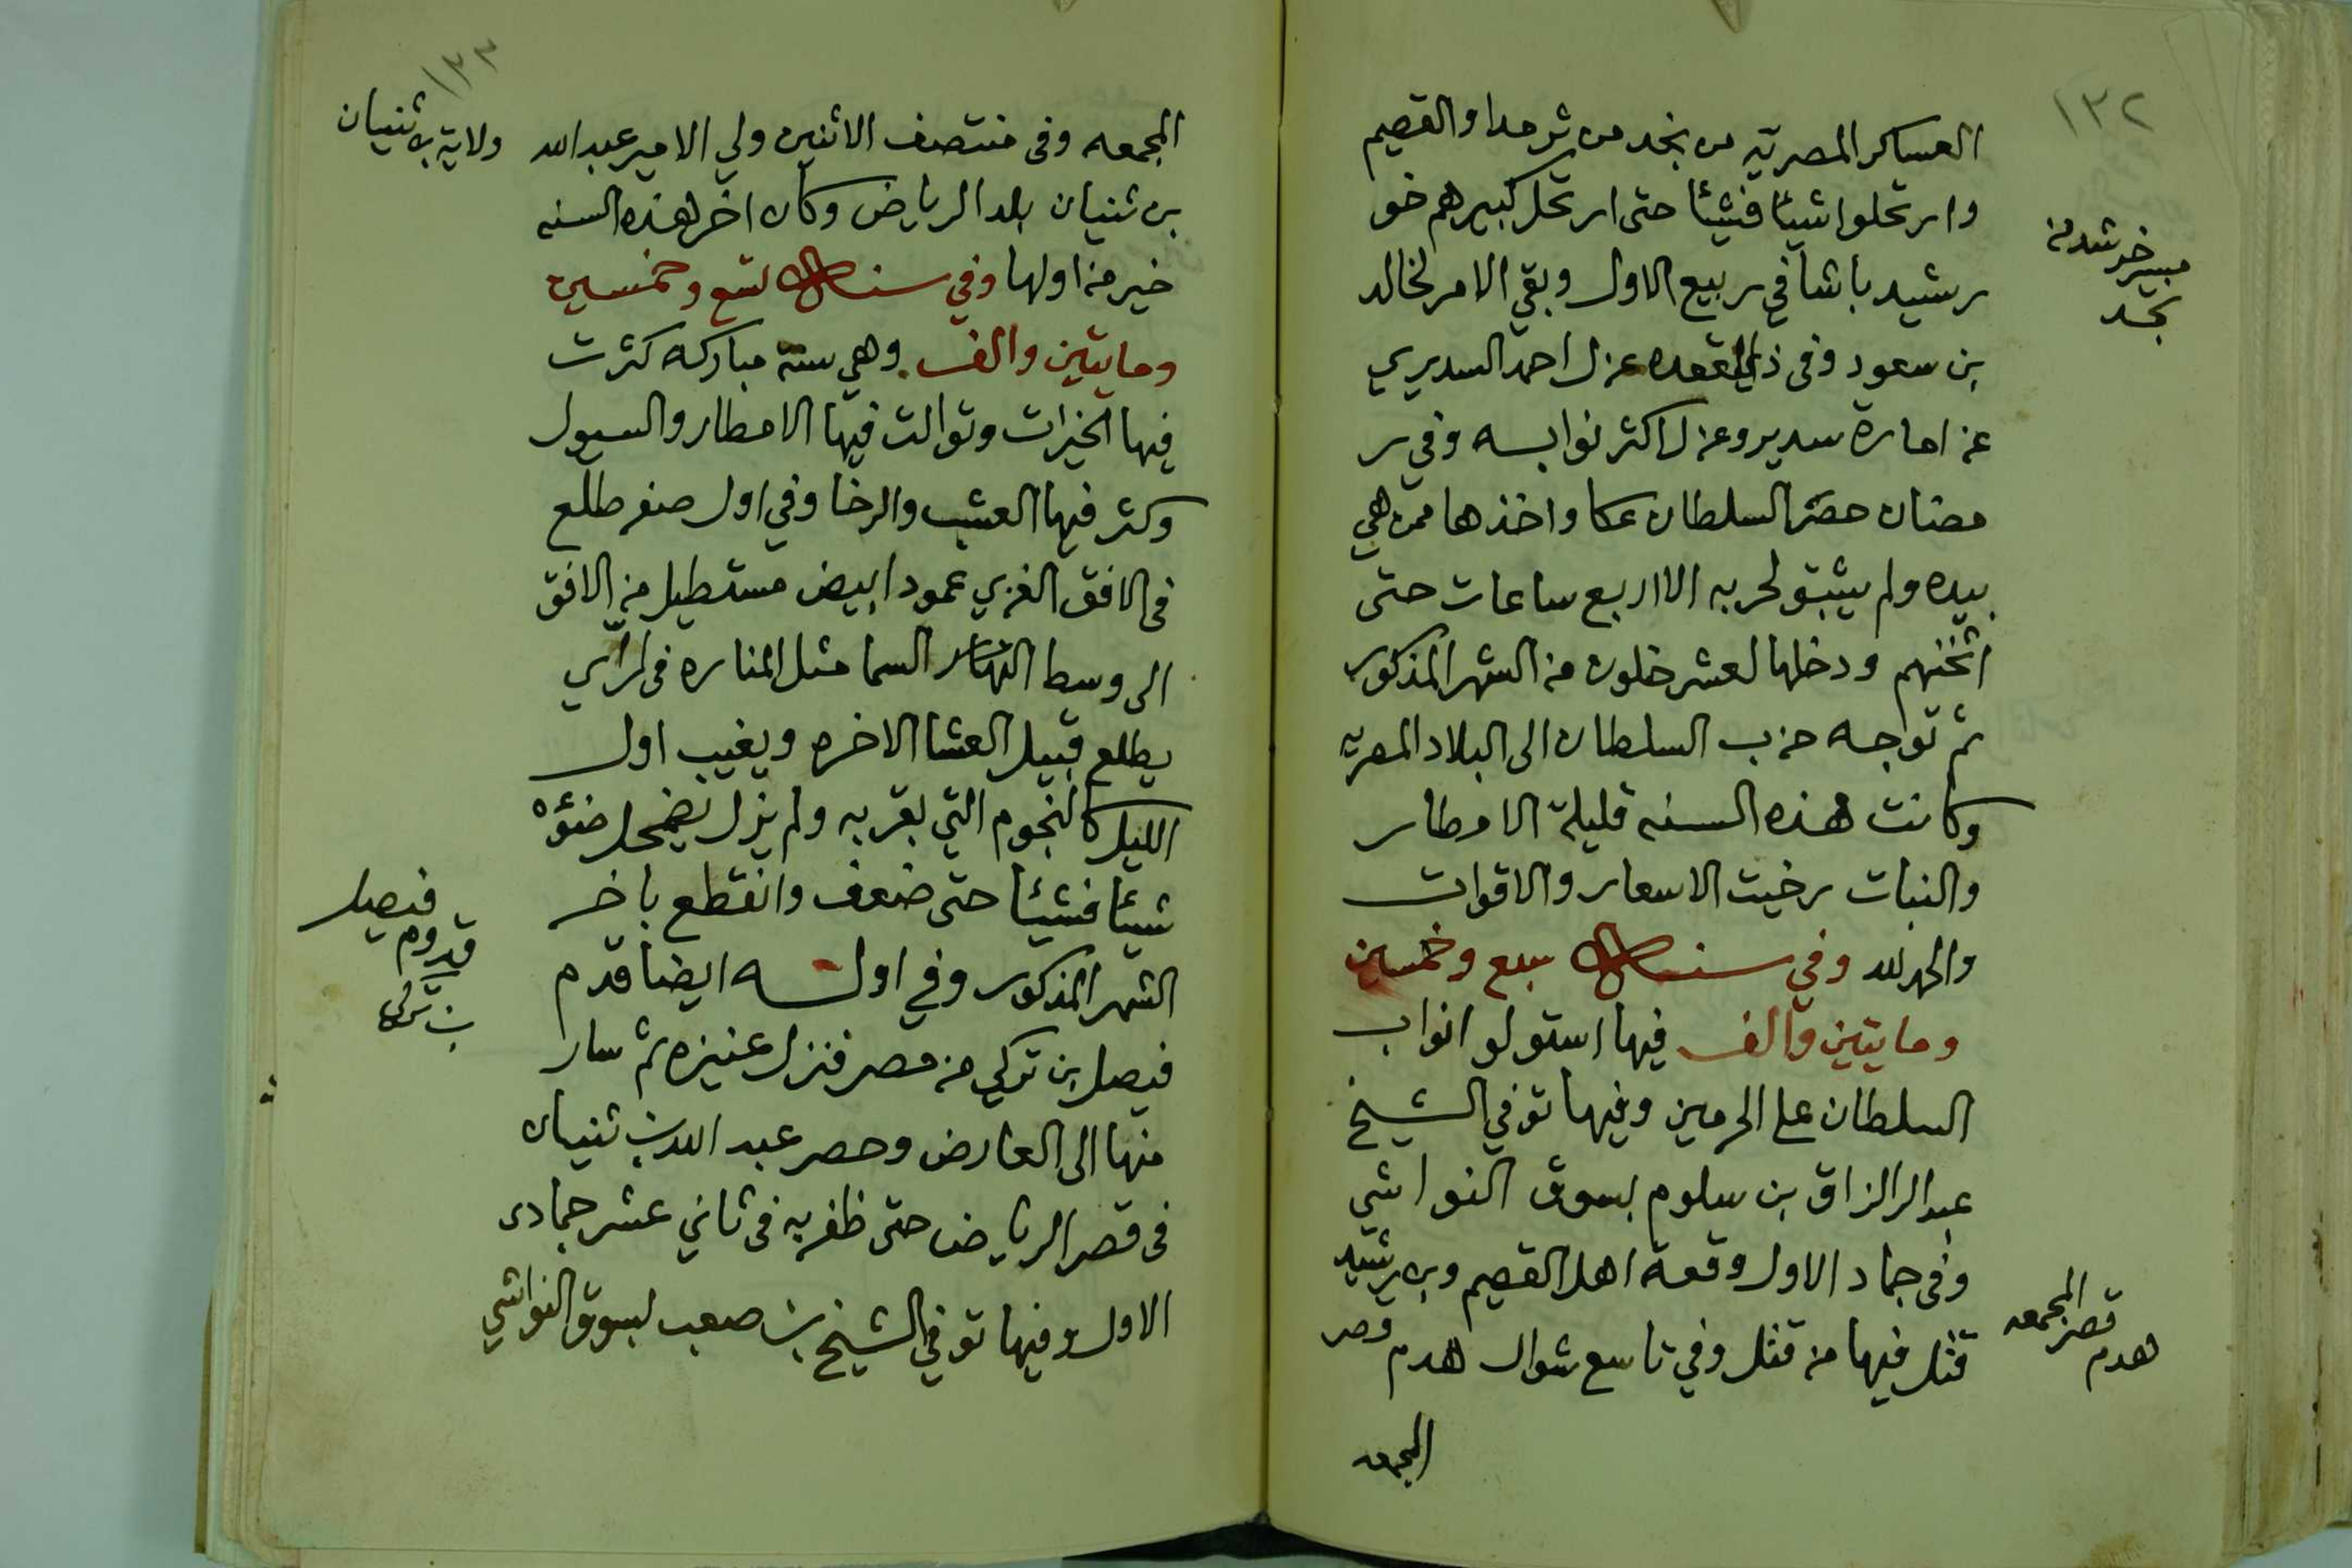 ١٣٢
العساكر المصريه من نجد من ثرمدا والقصيم
وارتحلوا شيئا فشيئا حتى ارتحل كبيرهم خو
رشيد باشا في ربيع الاول وبقي الامر لخالد
بن سعود وفى ذي القعده عزل احمد السديري
عن امارة سدير وعزل اكثر نوابه وفي ر
مضان حصر السلطان عكا واخذها ممن هي
بيده ولم يثبتو لحربه الا اربع ساعات حتى
اثخنهم ودخلها لعشر خلون من الشهر المذكور
ثم توجه حزب السلطان الى البلاد المصريه
وكانت هذه السنه قليلة الامطار
والنبات رخيت الاسعار والاقوات
والحمد لله وفي سنة سبع وخمسين
ومايتين والف فيها استولو انواب
السلطان على الحرمين وفيها توفي الشيخ
عبد الرالزاق بن سلوم بسوق النواشي
وفى جماد الاول وقعة اهل القصيم وبن رشيد
قتل فيها من قتل وفي تاسع شوال هدم قصر
المجمعه
مسير خرشد من
نجد
هدم قصر المجمعه
١٣٣
المجمعه وفى منتصف الاثنين ولي الامير عبد الله
بن ثنيان بلد الرياض وكان اخر هذه السنه
خير من اولها وفي سنة تسع وخمسين
ومايتين والف وهي سنة مباركه كثرت
فيها الخيرات وتوالت فيها الامطار والسيول
وكثر فيها العشب والرخا وفي اول صفر طلع
فى الافق الغربي عمود ابيض مستطيل من الافق
الى وسط النهار السما مثل المناره فى لرأي
يطلع قبيل العشا الاخره ويغيب اول
الليل كالنجوم التي بقربه ولم يزل يضمحل ضوؤه
شيئا فشيئا حتى ضعف وانقطع باخر
الشهر المذكور وفي اوله ايضا قدم
فيصل بن تركي من مصر فنزل عنيزه ثم سار
منها الى العارض وحصر عبد الله بن ثنيان
فى قصر الرياض حتى ظفر به فى ثاني عشر جمادى
الاول وفيها توفي الشيخ بن صعب بسوق النواشي
ولاية بن ثنيان
قدوم فيصل
بن تركي